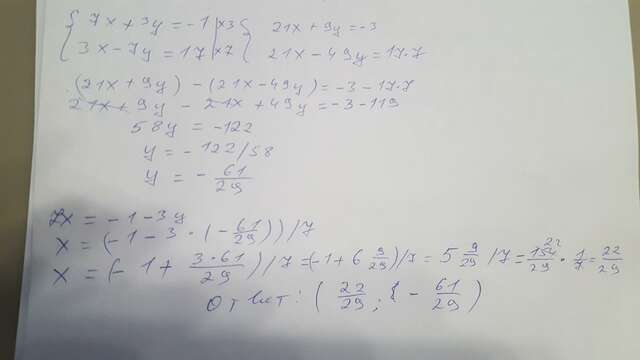 { 7x + 3y = -1 |×3 { 21x + 9y = -3
3x - 7y = 17 |×7 21x - 49y = 17·7
(21x + 9y) - (21x - 49y) = -3 - 17·7
21x + 9y - 21x + 49y = -3 - 119
58y = -122
y = - 122/58
y = - 61/29
7x = -1 - 3y
x = (-1 - 3 · (- 61/29)) / 7
x = (- 1 + 3·61/29) / 7 = (-1 + 6 9/29) / 7 = 5 9/29 / 7 = 154/29 · 1/7 = 22/29
Ответ: ( 22/29 ; - 61/29 )